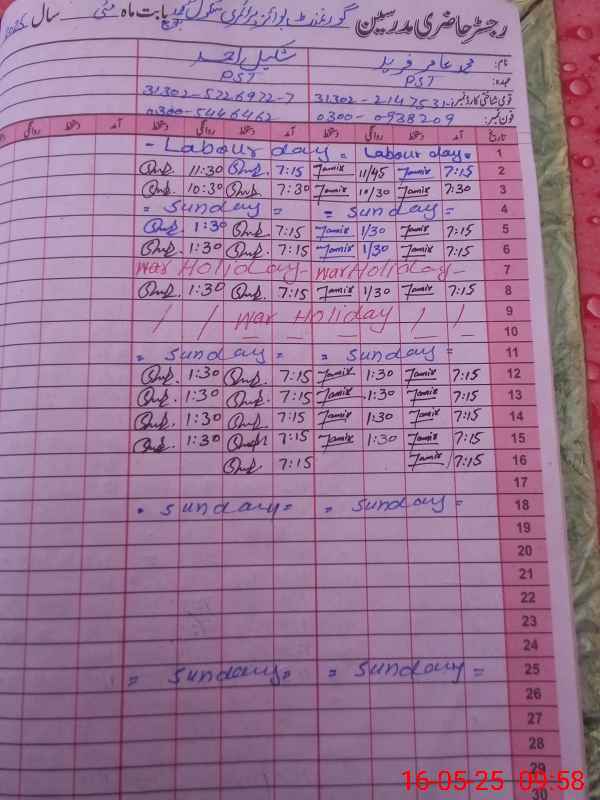 رجسٹر حاضری مدرسین گورنمنٹ بوائز پرائمری سکول بابت ماہ مئی سال 2025
نام: محمد عامر فرید شکیل احمد
عہدہ: PST PST
قومی شناختی کارڈ نمبر: 31302-2147531- 31302-5726972-7
فون نمبر: 0300-0938209 0300-5446462
تاریخ آمد دستخط روانگی دستخط آمد دستخط روانگی دستخط آمد دستخط روانگی
- Labour day = Labour day = 1
11:30 7:15 Jamir 11/45 Jamir 7:15 2
10:30 7:30 Jamir 10/30 Jamir 7:30 3
= Sunday = = Sunday = 4
1:30 7:15 Jamir 1/30 Jamir 7:15 5
1:30 7:15 Jamir 1/30 Jamir 7:15 6
War Holiday - War Holiday - 7
1:30 7:15 Jamir 1/30 Jamir 7:15 8
/ / War Holiday / / 9
— — — — — 10
= Sunday = = Sunday = 11
1:30 7:15 Jamir 1:30 Jamir 7:15 12
1:30 7:15 Jamir 1:30 Jamir 7:15 13
1:30 7:15 Jamir 1:30 Jamir 7:15 14
1:30 7:15 Jamir 1:30 Jamir 7:15 15
7:15 Jamir 7:15 16
17
Sunday = = Sunday = 18
19
20
21
22
23
24
= Sunday = = Sunday = 25
26
27
28
29
30
16-05-25 09:58